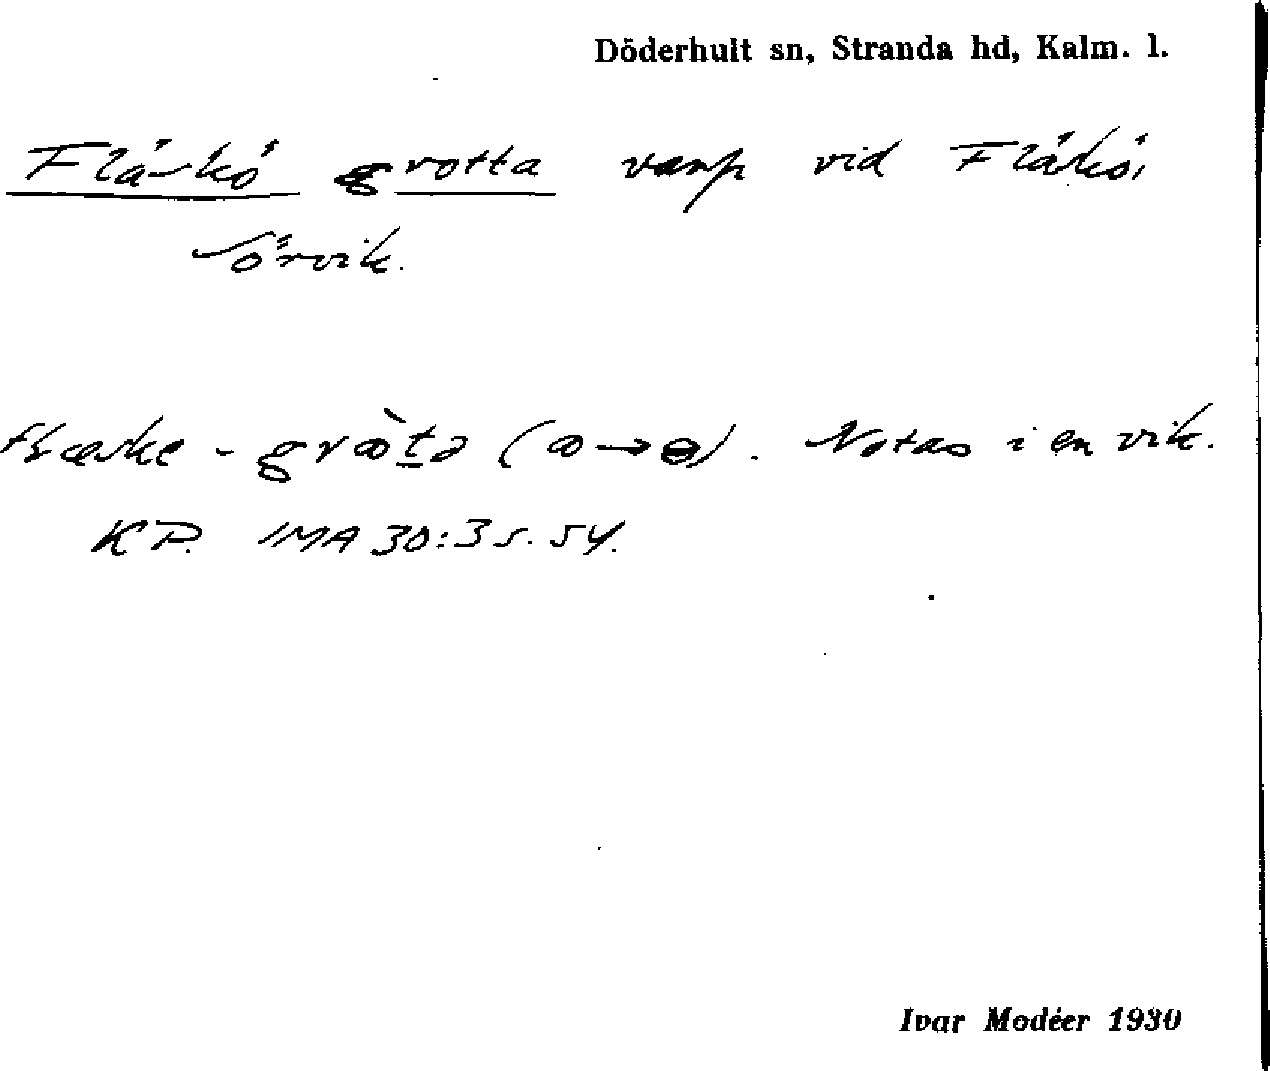 Döderhult sn, Stranda hd, Kalm. l.
Flärkö grotta varp vid Flärkö,
Sörvik.
grȯta (ɷ→ɵ). Notas i en vik.
KP. IMA 30:35.54.
Ivar Modéer 1930